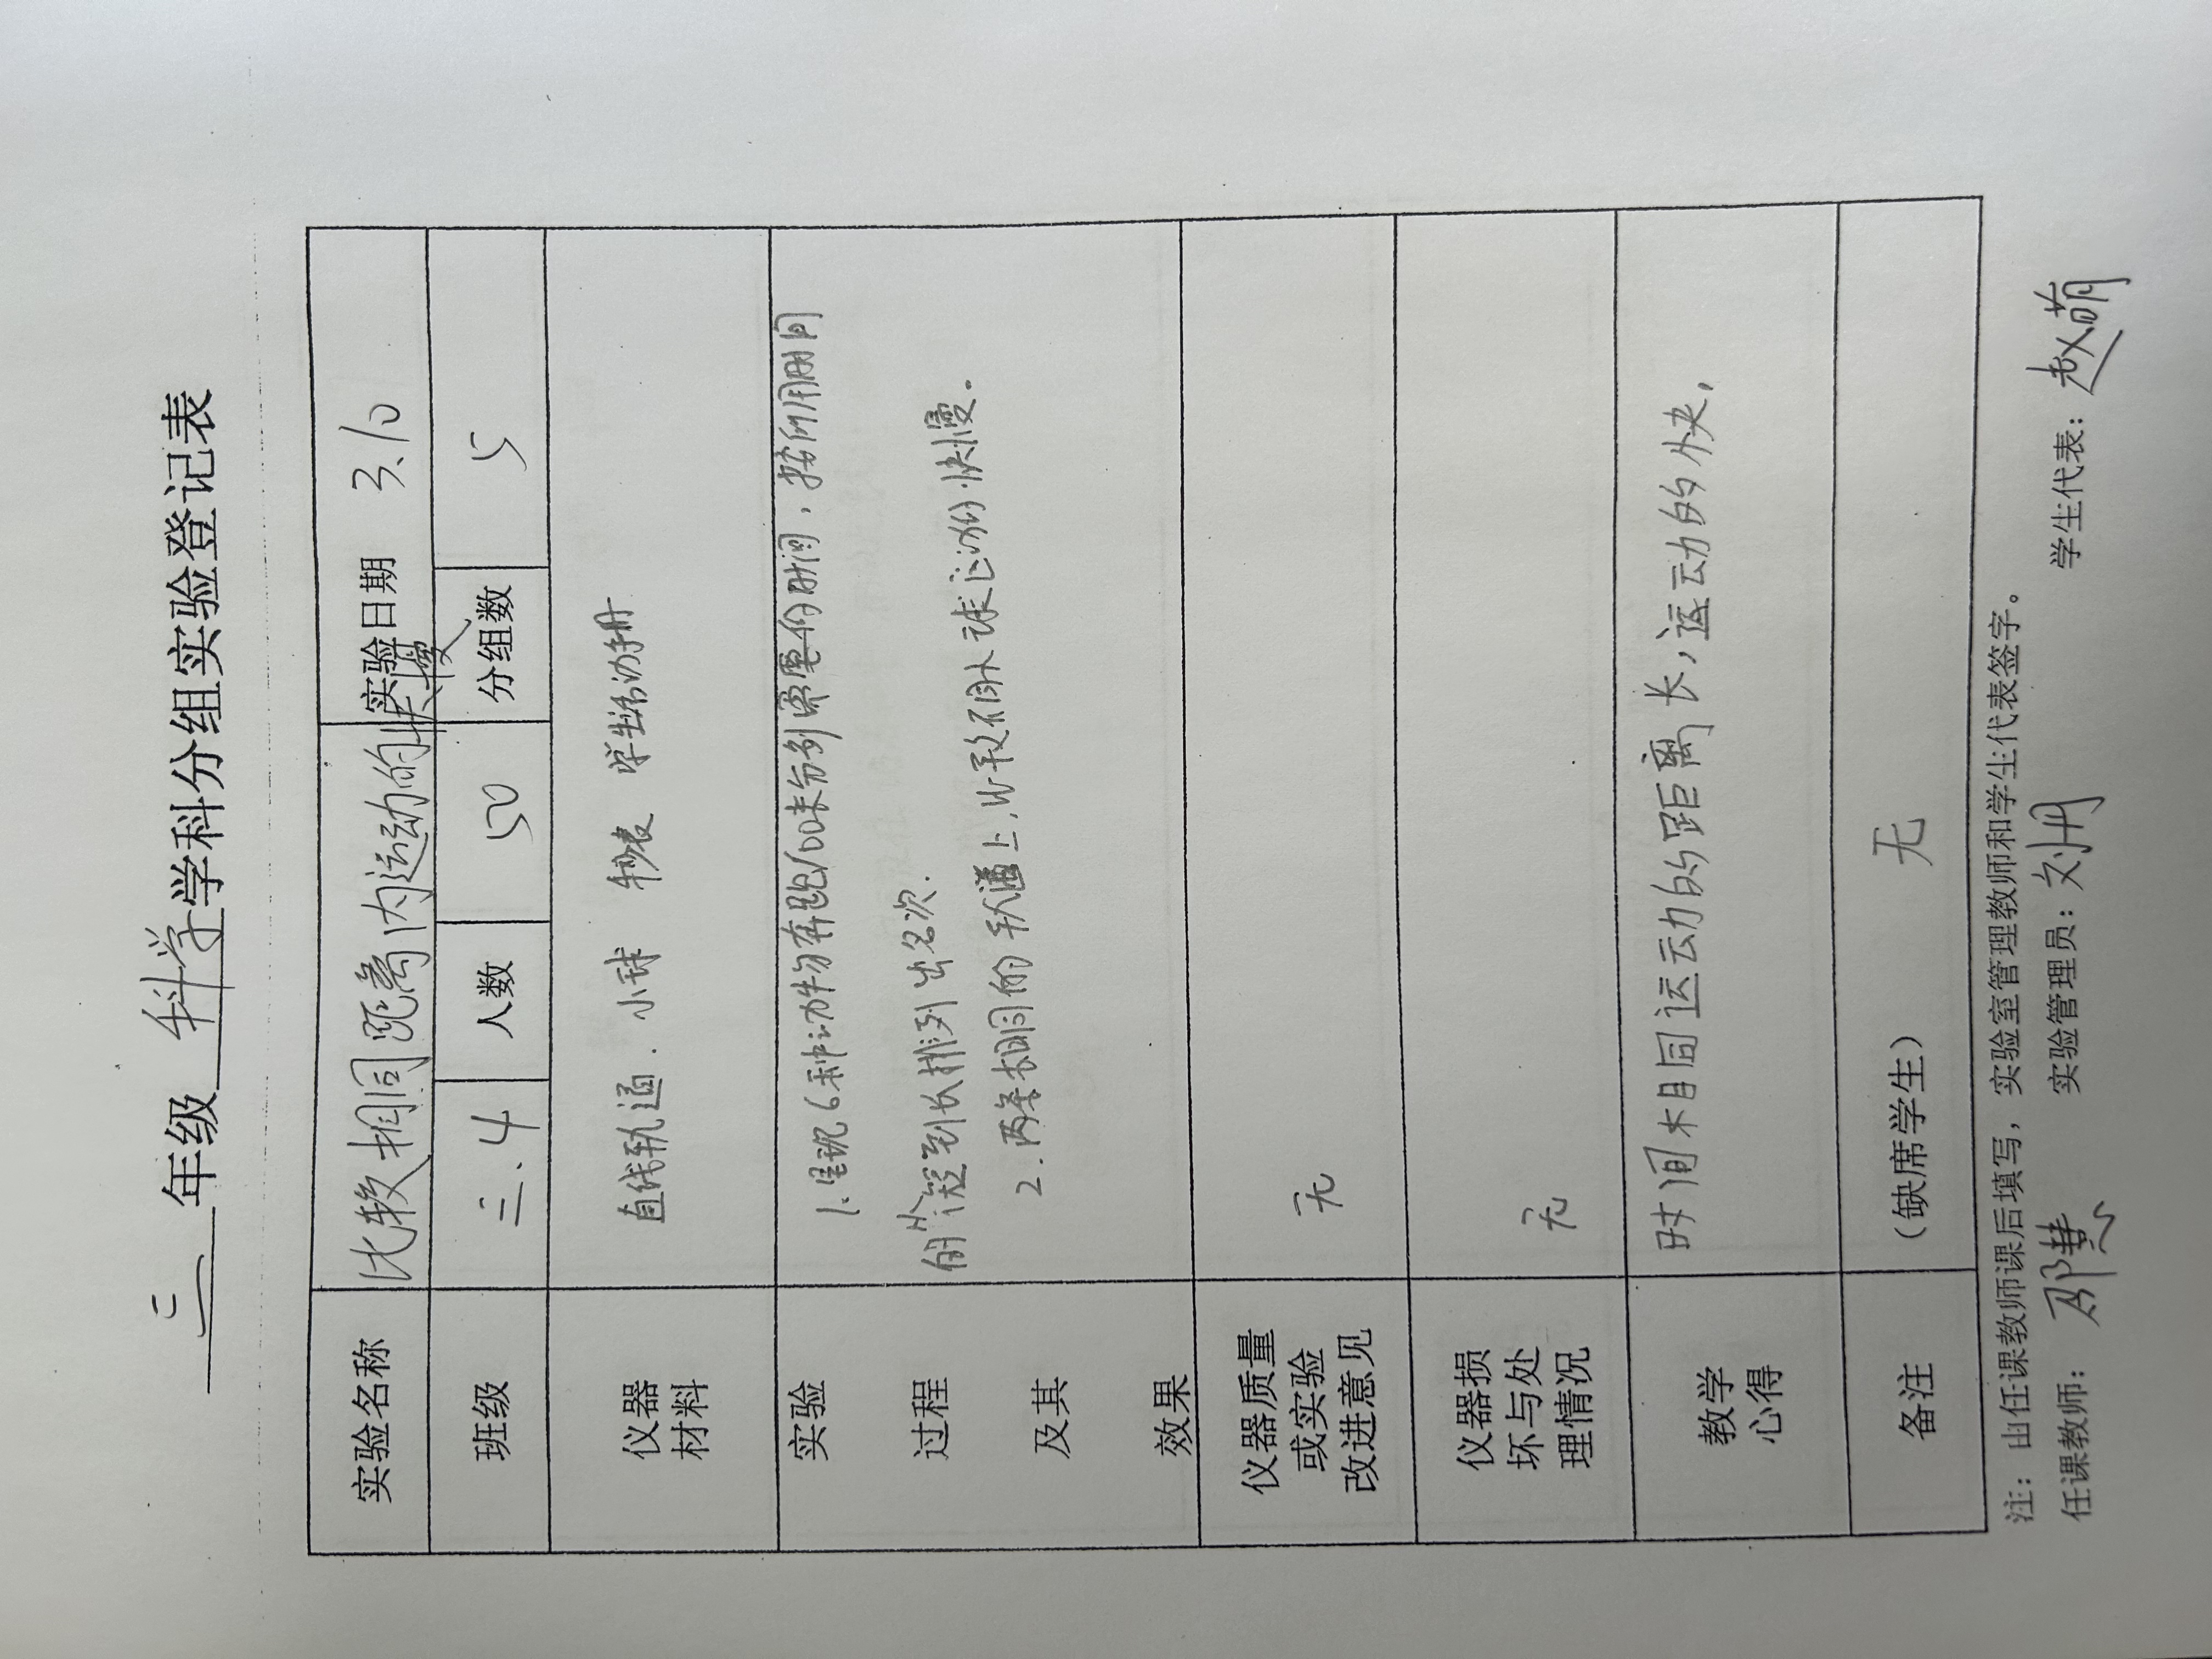 三 年级 科学 学科分组实验登记表
实验名称 比较相同距离内运动的快慢 实验日期 3.10
班级 三.4 人数 50 分组数 5
仪器
材料
直线轨道. 小球 秒表 学生活动手册
实验
过程
及其
效果
1. 呈现6种动物奔跑100米分别需要的时间, 按所用时间
的从短到长排列出名次.
2. 两条相同的轨道上, 比较不同小球运动的快慢.
仪器质量
或实验
改进意见
无
仪器损
坏与处
理情况
无
教学
心得
时间相同运动的距离长, 运动的快,
备注 (缺席学生) 无
注: 由任课教师课后填写, 实验室管理教师和学生代表签字。
任课教师: 实验管理员: 学生代表: 赵萌